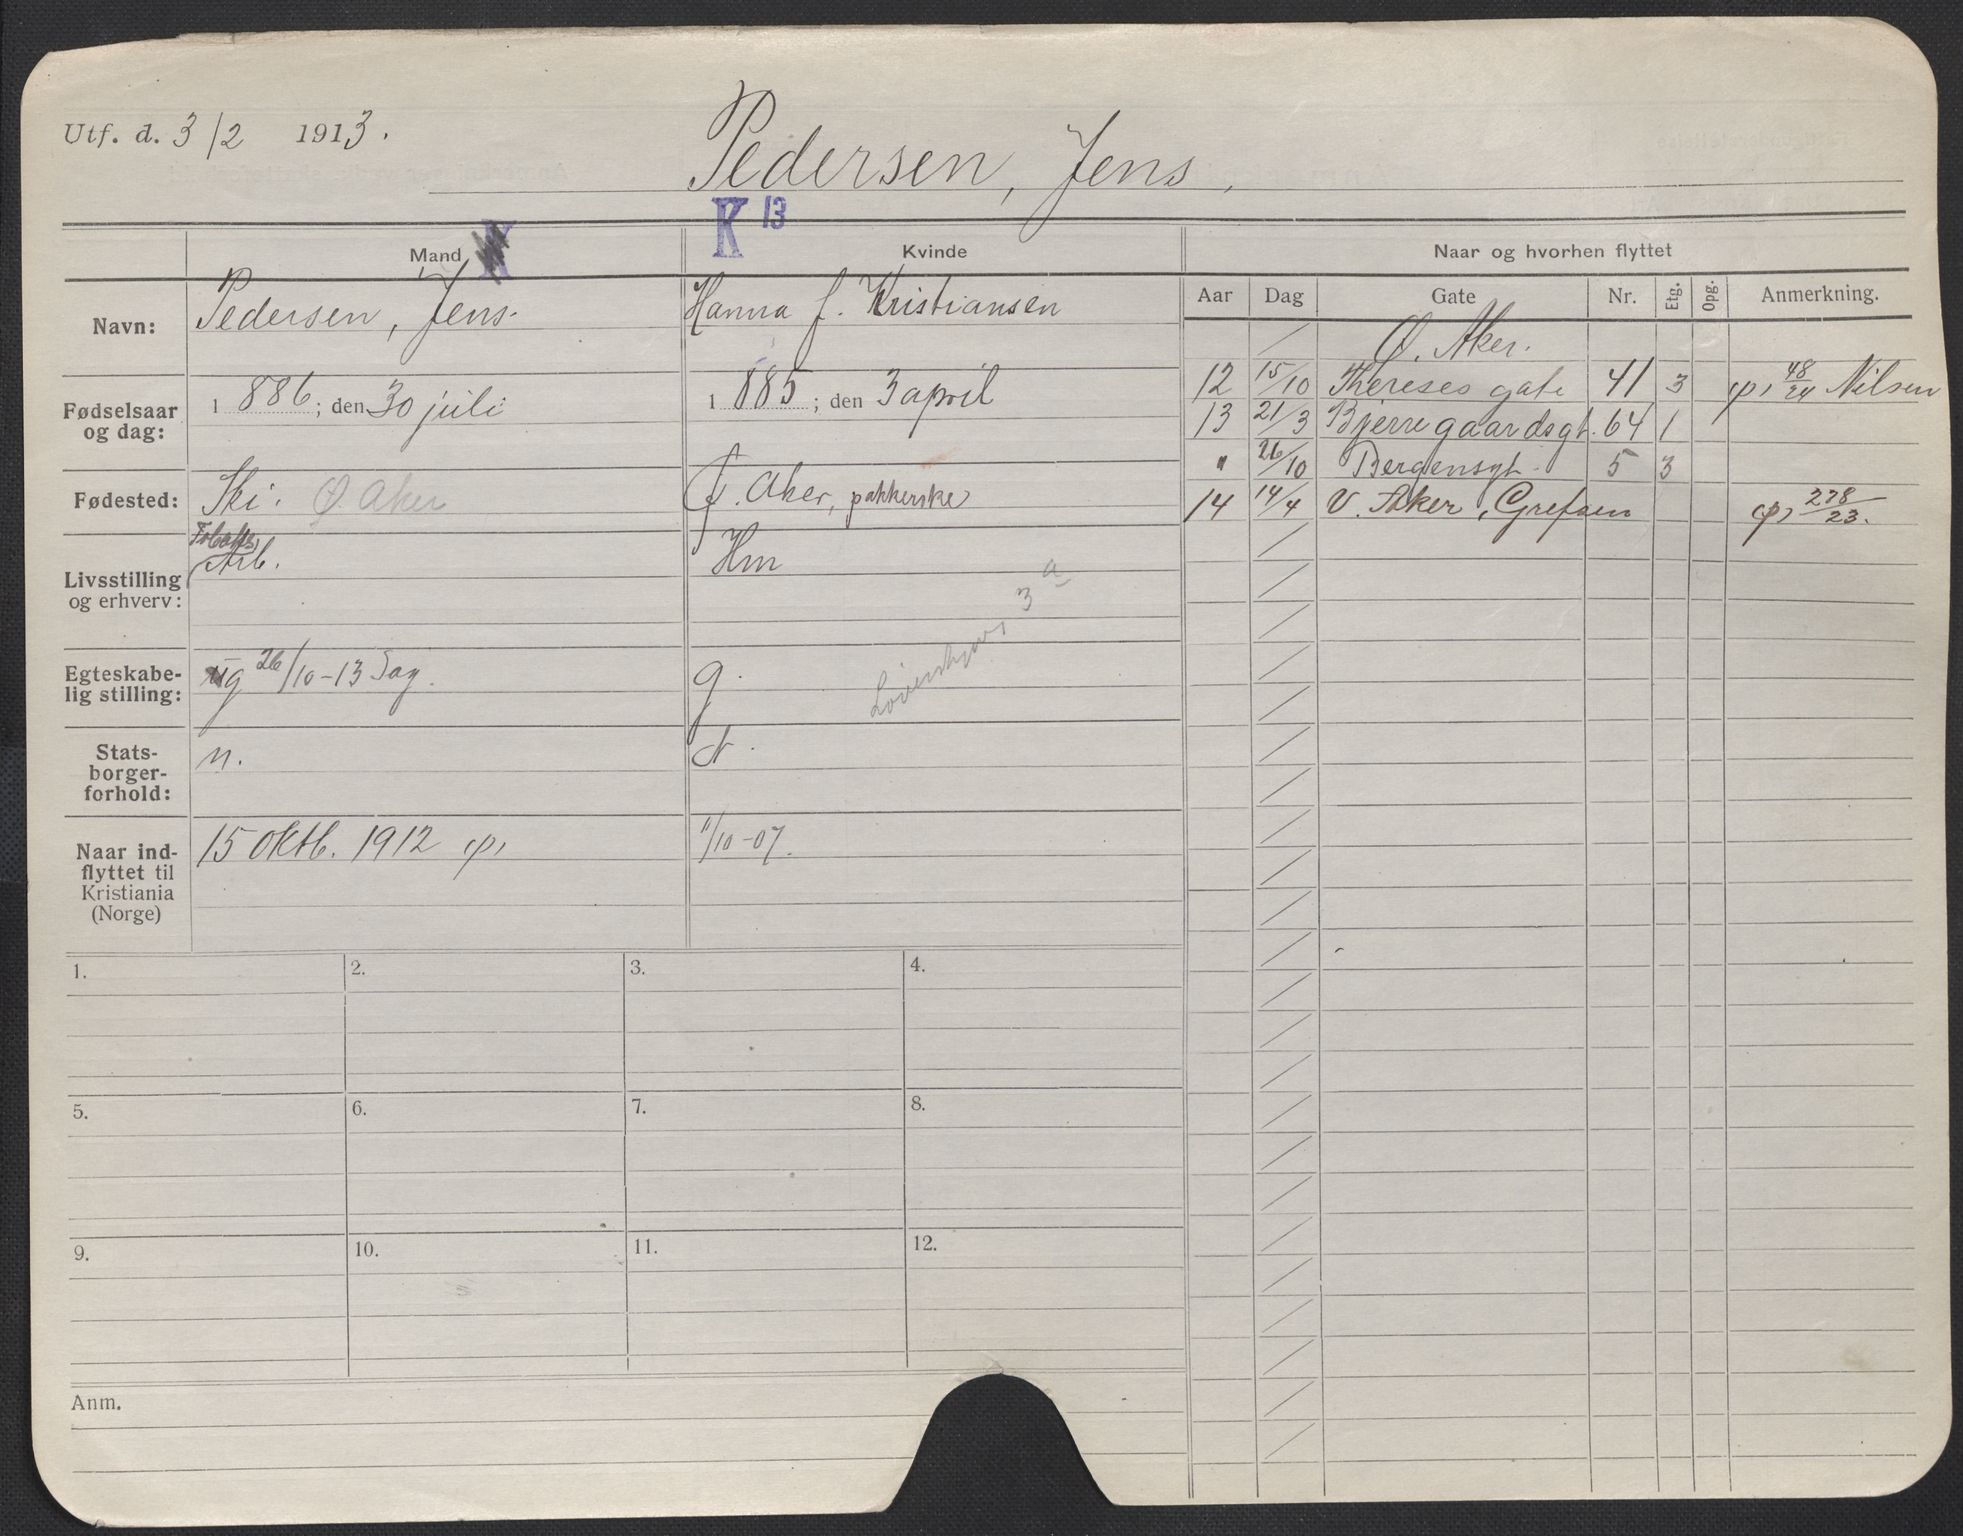 Utf. d. 3/2 1913.
Pedersen, Jens.
K 13
Mand K
Kvinde
Naar og hvorhen flyttet
Aar Dag Gate Nr. Etg. Opg. Anmerkning.
Navn: Pedersen, Jens. Hanna f. Kristiansen
Fødselsaar og dag: 1886; den 30 juli 1885; den 3 april
Fødested: Ski. Ø. Aker Ø. Aker, pakkerske
Livsstilling og erhverv: Arb. Hm
Løvenskjolds 3 a
Egteskabelig stilling: ug 26/10-13 g.
Statsborgerforhold: n. n.
Naar indflyttet til Kristiania (Norge) 15 Oktb. 1912 11/10-07.
Ø. Aker.
12 15/10 Thereses gate 41 3 48/24 Nilsen
13 21/3 Bjerregaardsgt. 64 1
" 26/10 Bergensgt. 5 3
14 14/4 V. Aker, Grefsen 278/23.
1. 2. 3. 4.
5. 6. 7. 8.
9. 10. 11. 12.
Anm.